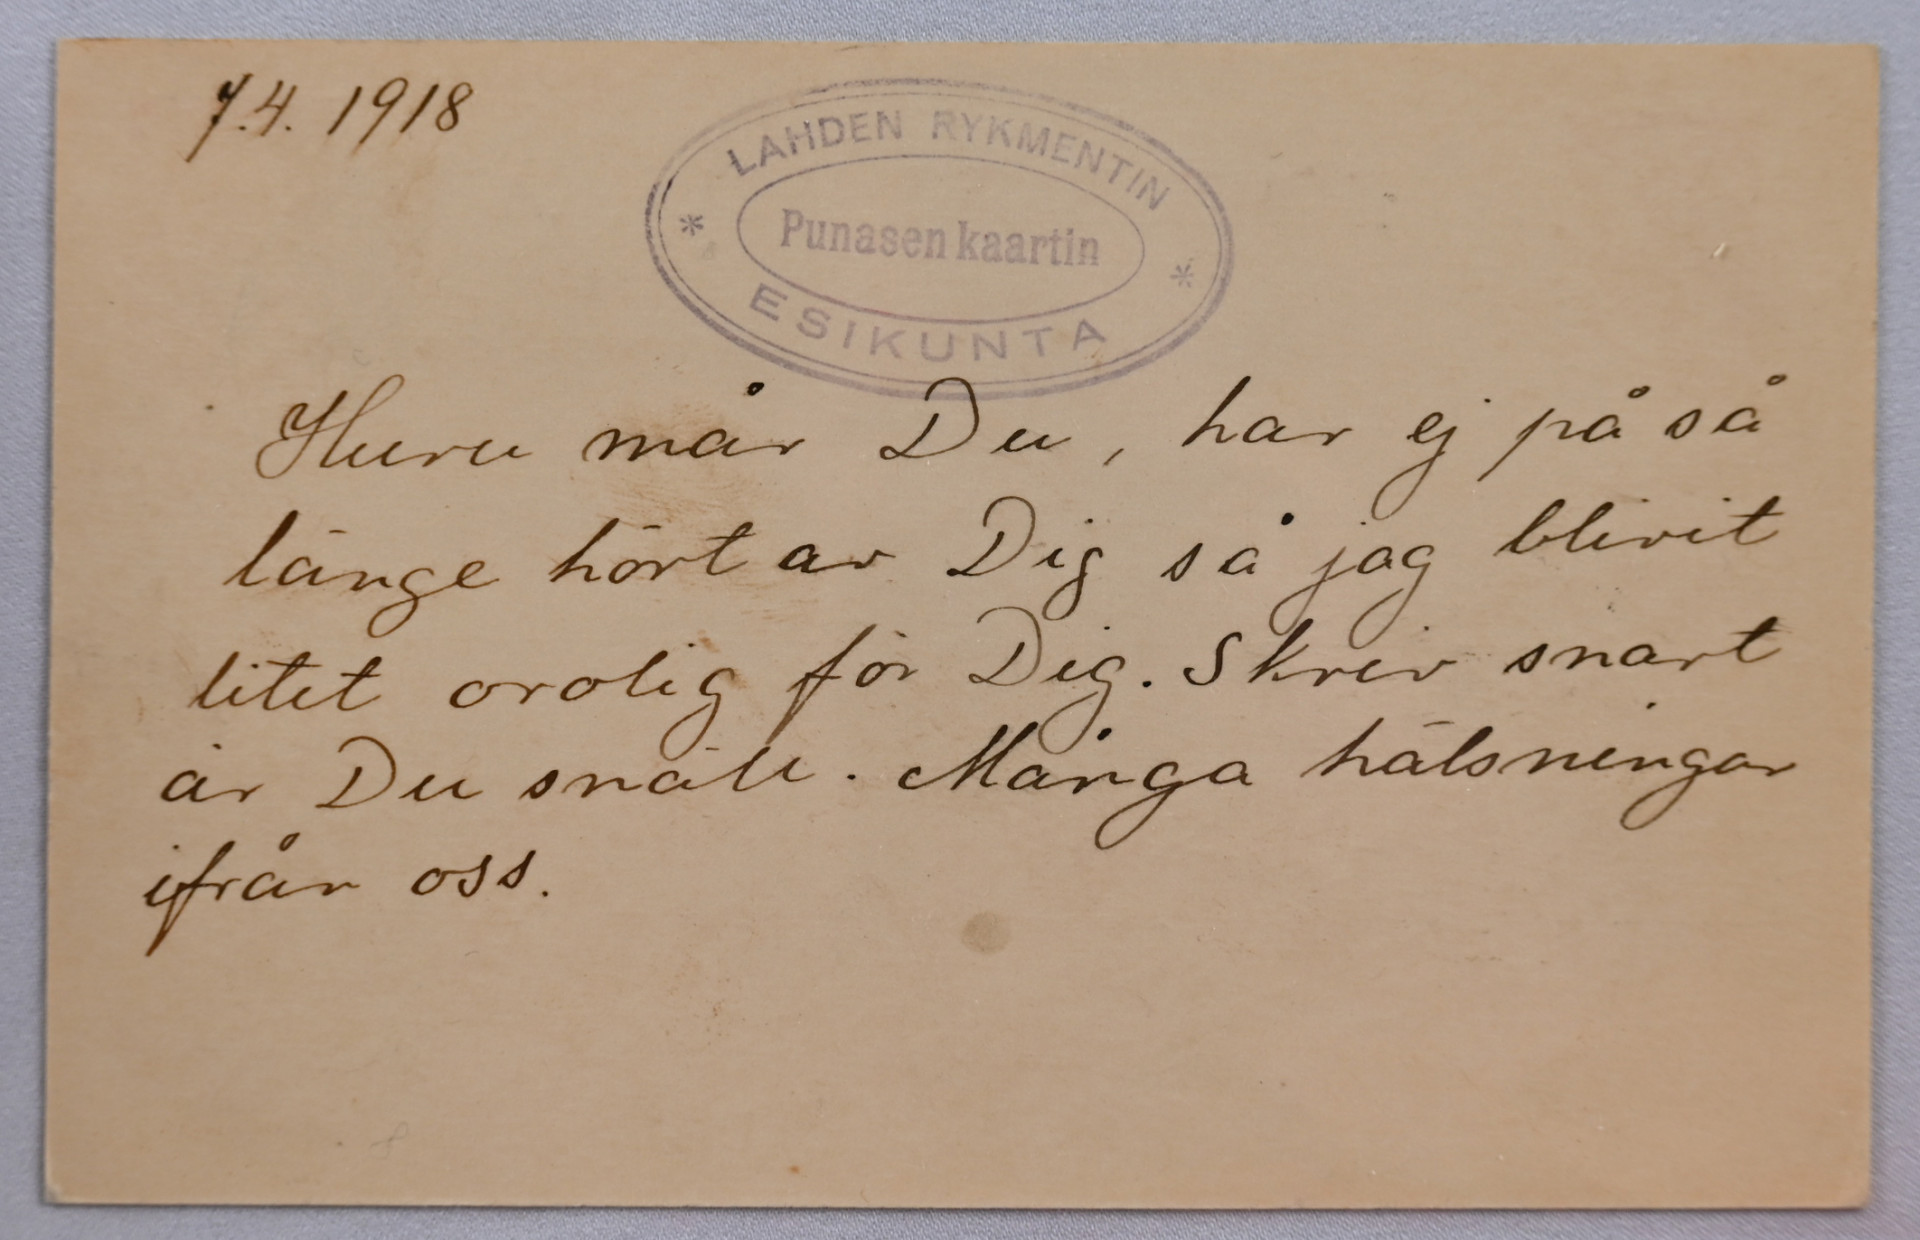 7.4. 1918
LAHDEN RYKMENTIN
* Punasen kaartin *
ESIKUNTA
Huru mår Du, har ej på så
länge hört av Dig så jag blivit
litet orolig för Dig. Skriv snart
är Du snäll. Många hälsningar
ifrån oss.